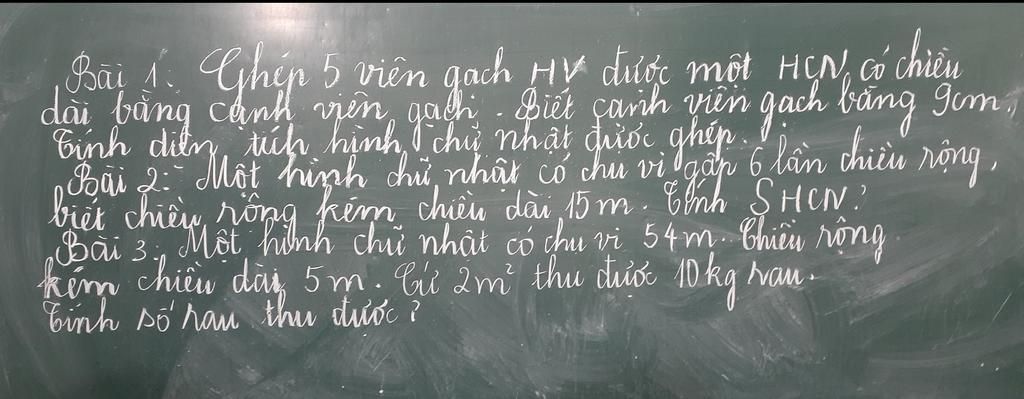 Bài 1: Ghép 5 viên gạch HV được một HCN, có chiều
dài bằng cạnh viên gạch. Biết cạnh viên gạch bằng 9cm.
Tính diện tích hình chữ nhật được ghép.
Bài 2: Một hình chữ nhật có chu vi gấp 6 lần chiều rộng,
biết chiều rộng kém chiều dài 15m. Tính SHCN?
Bài 3: Một hình chữ nhật có chu vi 54m. Chiều rộng
kém chiều dài 5m. Cứ 2m² thu được 10kg rau.
Tính số rau thu được?